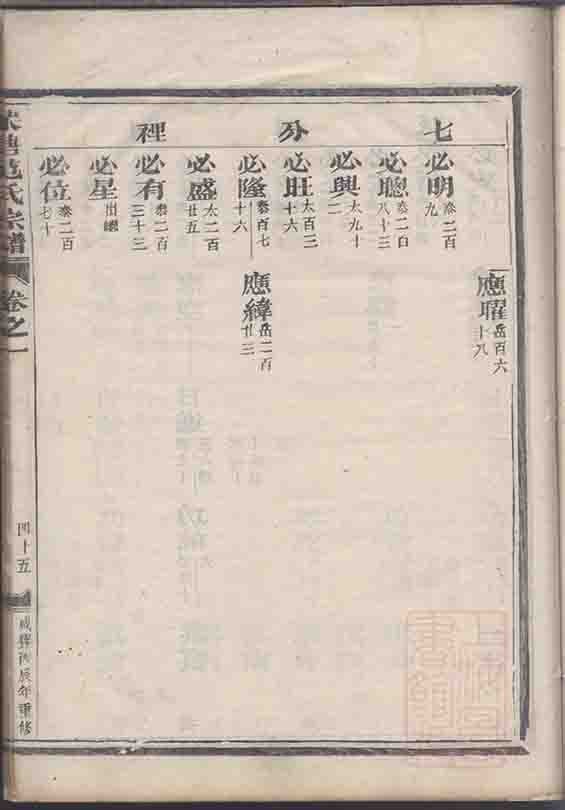 七 分 裡
應曜 岳百六十八
必明 泰二百九
必聰 泰二百八十三
必興 太九十二
必旺 太百三十六
必隆 泰百七十六
應緯 岳二百廿三
必盛 太二百廿五
必有 泰二百三十三
必星 出繼
必位 泰二百七十
范氏宗譜
卷之一
四十五
咸豐丙辰年重修